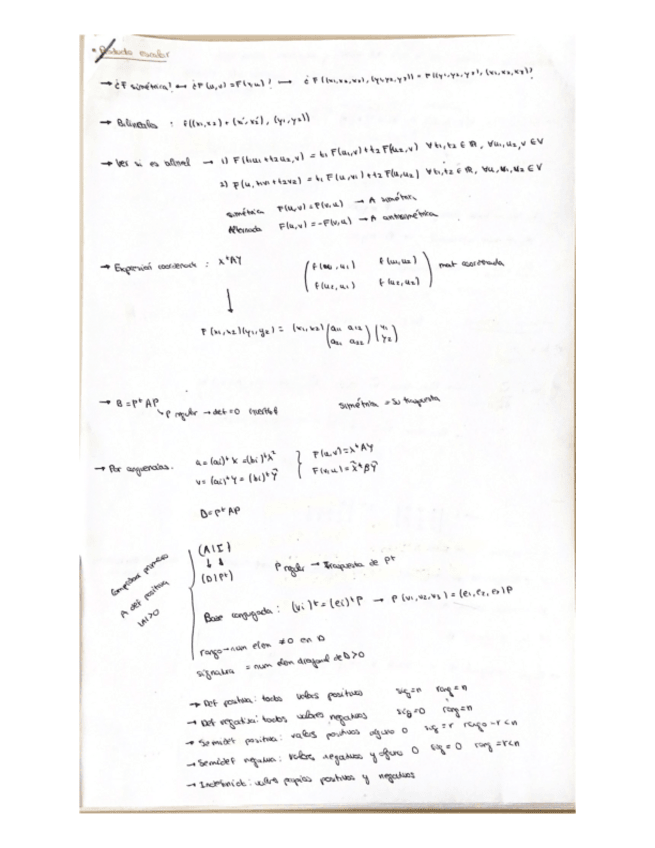 • Producto escalar
→ ¿F simétrica? ↔ ¿F(u,v) = F(v,u)? ⟷ ¿F((x1,x2,x3),(y1,y2,y3)) = F((y1,y2,y3),(x1,x2,x3))?
→ Bilineales : f((x1,x2) + (x1',x2'), (y1,y2))
→ Ver si es → 1) F(t1u1+t2u2,v) = t1 F(u1,v)+t2 F(u2,v) ∀t1,t2 ∈ R, ∀u1,u2,v ∈ V
2) F(u, t1v1+t2v2) = t1 F(u,v1)+t2 F(u,v2) ∀t1,t2 ∈ R, ∀u
simétrica F(u,v)=F(v,u) → A simétrica
Alternada F(u,v)=-F(v,u) → A antisimétrica
→ Expresión coordenada : XᵗAY
(f(u1,u1) f(u1,u2)
f(u2,u1) f(u2,u2)) mat coordenada
↓
F(x1,x2)(y1,y2) = (x1,x2)(a11 a12
a21 a22)(y1
y2)
→ B=PᵗAP
↳ P regular → det=0
Simétrica = Su traspuesta
→ Por congruencias.
u=(ai)ᵗX =(bi)ᵗ
v=(ai)ᵗY=(bi)ᵗŶ
F(u,v)=XᵗAY
D=PᵗAP
Comprobar primero
A def positiva
|A|>0
(A|I)
↓ ↓
(D|Pᵗ)
P regular → Traspuesta de Pᵗ
Base conjugada : (vi)ᵗ=(ei)ᵗP → P(v1,v2,v3)=(e1,e2,e3)P
rango→num elem ≠0 en D
signatura = num elem diagonal de D>0
→ Def positiva: todos valores positivos sig=n rang=n
→ Def negativa: todos valores negativos sig=0 rang=n
→ Semidef positiva: valores positivos alguno 0 sig=r rango=r<n
→ Semidef negativa: valores negativos y alguno 0 sig=0 rang=r<n
→ valores propios positivos y negativos